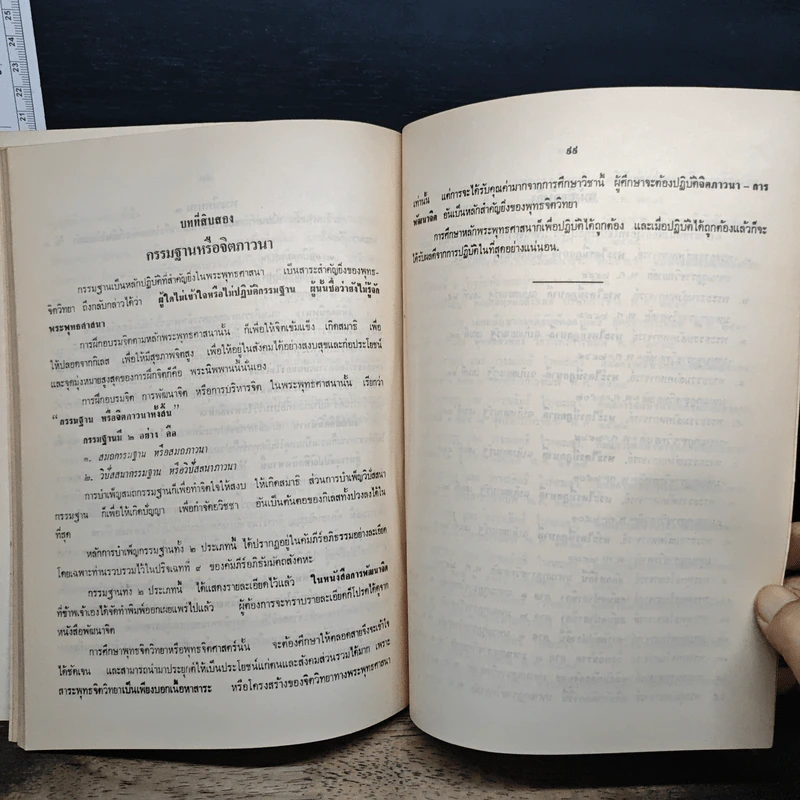 บทที่สิบสอง
กรรมฐานหรือจิตภาวนา
กรรมฐานเป็นหลักปฏิบัติที่สำคัญยิ่งในพระพุทธศาสนา เป็นสาระสำคัญยิ่งของพุทธ-
จิตวิทยา ถึงกลับกล่าวได้ว่า ผู้ใดไม่เข้าใจหรือไม่ปฏิบัติกรรมฐาน ผู้นั้นชื่อว่ายังไม่รู้จัก
พระพุทธศาสนา
การฝึกอบรมจิตตามหลักพระพุทธศาสนานั้น ก็เพื่อให้จิตเข้มแข็ง เกิดสมาธิ เพื่อ
ให้ปลอดจากกิเลส เพื่อให้มีสุขภาพจิตสูง เพื่อให้อยู่ในสังคมได้อย่างสงบสุขและก่อประโยชน์
และจุดมุ่งหมายสูงสุดของการฝึกจิตก็คือ พระนิพพานนั้นนั่นเอง
การฝึกอบรมจิต การพัฒนาจิต หรือการบริหารจิต ในพระพุทธศาสนานั้น เรียกว่า
"กรรมฐาน หรือจิตภาวนาทั้งสิ้น"
กรรมฐานมี ๒ อย่าง คือ
๑. สมถกรรมฐาน หรือสมถภาวนา
๒. วิปัสสนากรรมฐาน หรือวิปัสสนาภาวนา
การบำเพ็ญสมถกรรมฐานก็เพื่อทำจิตใจให้สงบ ให้เกิดสมาธิ ส่วนการบำเพ็ญวิปัสสนา
กรรมฐาน ก็เพื่อให้เกิดปัญญา เพื่อกำจัดอวิชชา อันเป็นต้นตอของกิเลสทั้งปวงลงได้ใน
ที่สุด
หลักการบำเพ็ญกรรมฐานทั้ง ๒ ประเภทนี้ ได้ปรากฏอยู่ในคัมภีร์อภิธรรมอย่างละเอียด
โดยเฉพาะท่านรวบรวมไว้ในปริจเฉทที่ ๙ ของคัมภีร์อภิธัมมัตถสังคหะ
กรรมฐานทั้ง ๒ ประเภทนี้ ได้แสดงรายละเอียดไว้แล้ว ในหนังสือการพัฒนาจิต
ที่ข้าพเจ้าเองได้จัดทำพิมพ์ออกเผยแพร่ไปแล้ว ผู้ต้องการจะทราบรายละเอียดก็โปรดได้ดูจาก
หนังสือพัฒนาจิต
การศึกษาพุทธจิตวิทยาหรือพุทธจิตศาสตร์นั้น จะต้องศึกษาให้ตลอดสายจึงจะเข้าใจ
ได้ชัดเจน และสามารถนำมาประยุกต์ให้เป็นประโยชน์แก่ตนและสังคมส่วนรวมได้มาก เพราะ
สาระพุทธจิตวิทยาเป็นเพียงบอกเนื้อหาสาระ หรือโครงสร้างของจิตวิทยาทางพระพุทธศาสนา
๙๙
เท่านั้น แต่การจะได้รับคุณค่ามากจากการศึกษาวิชานี้ ผู้ศึกษาจะต้องปฏิบัติจิตภาวนา – การ
พัฒนาจิต อันเป็นหลักสำคัญยิ่งของพุทธจิตวิทยา
การศึกษาหลักพระพุทธศาสนาก็เพื่อปฏิบัติได้ถูกต้อง และเมื่อปฏิบัติได้ถูกต้องแล้วก็จะ
ได้รับผลดีจากการปฏิบัติในที่สุดอย่างแน่นอน.
21
22
23
24
25